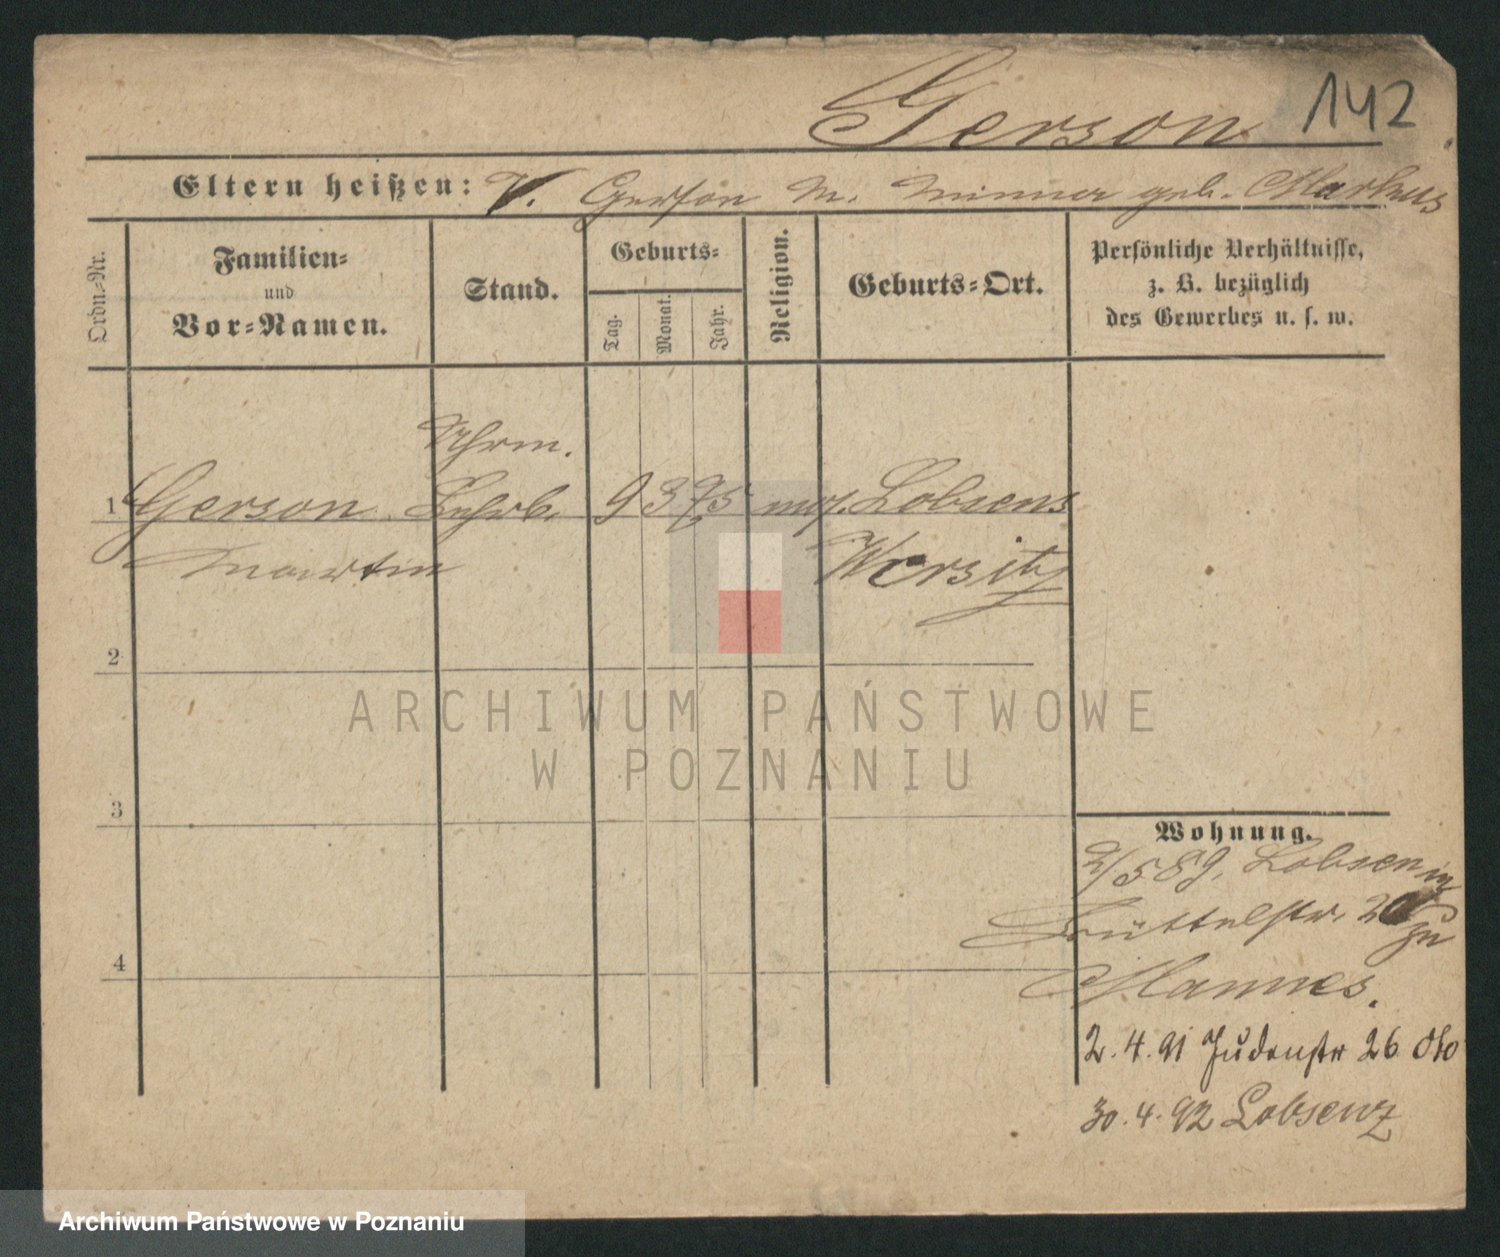 Gerson 142
Eltern heißen: V. Gerson M. Minna geb. Markus
Ordn.=Nr.
Familien=
und
Vor=Namen.
Stand.
Geburts=
Tag.
Monat.
Jahr.
Religion.
Geburts=Ort.
Persönliche Verhältnisse,
z. B. bezüglich
des Gewerbes u. s. w.
1 Gerson Lehrb. 9 3 75 mos. Lobsens
Martin Wirsitz
2
3
4
Wohnung.
2/5 89. Lobsens
Büttelstr. 20 zu
Mannes.
2.4.91 Judenstr 26
30.4.92 Lobsenz
ARCHIWUM PAŃSTWOWE
W POZNANIU
Archiwum Państwowe w Poznaniu